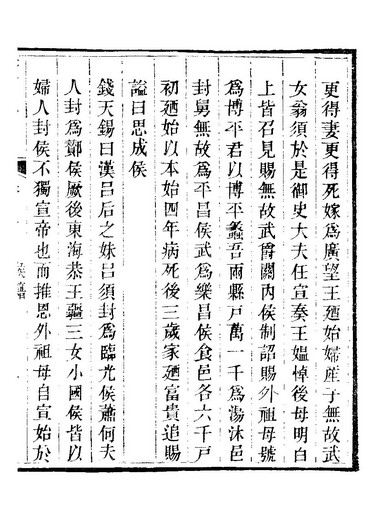 更得妻更得死嫁爲廣望王廼始婦產子無故武
女翁須於是御史大夫任宣奏王媼悼後母明白
上皆召見賜無故武爵關內侯制詔賜外祖母號
爲博平君以博平蠡吾兩縣戸萬一千爲湯沐邑
封舅無故爲平昌侯武爲樂昌侯食邑各六千戸
初廼始以本始四年病死後三歲家廼富貴追賜
諡曰思成侯
錢天錫曰漢呂后之妹呂須封爲臨光侯蕭何夫
人封爲酇侯厥後東海恭王彊三女小國侯皆以
婦人封侯不獨宣帝也而推恩外祖母自宣始於